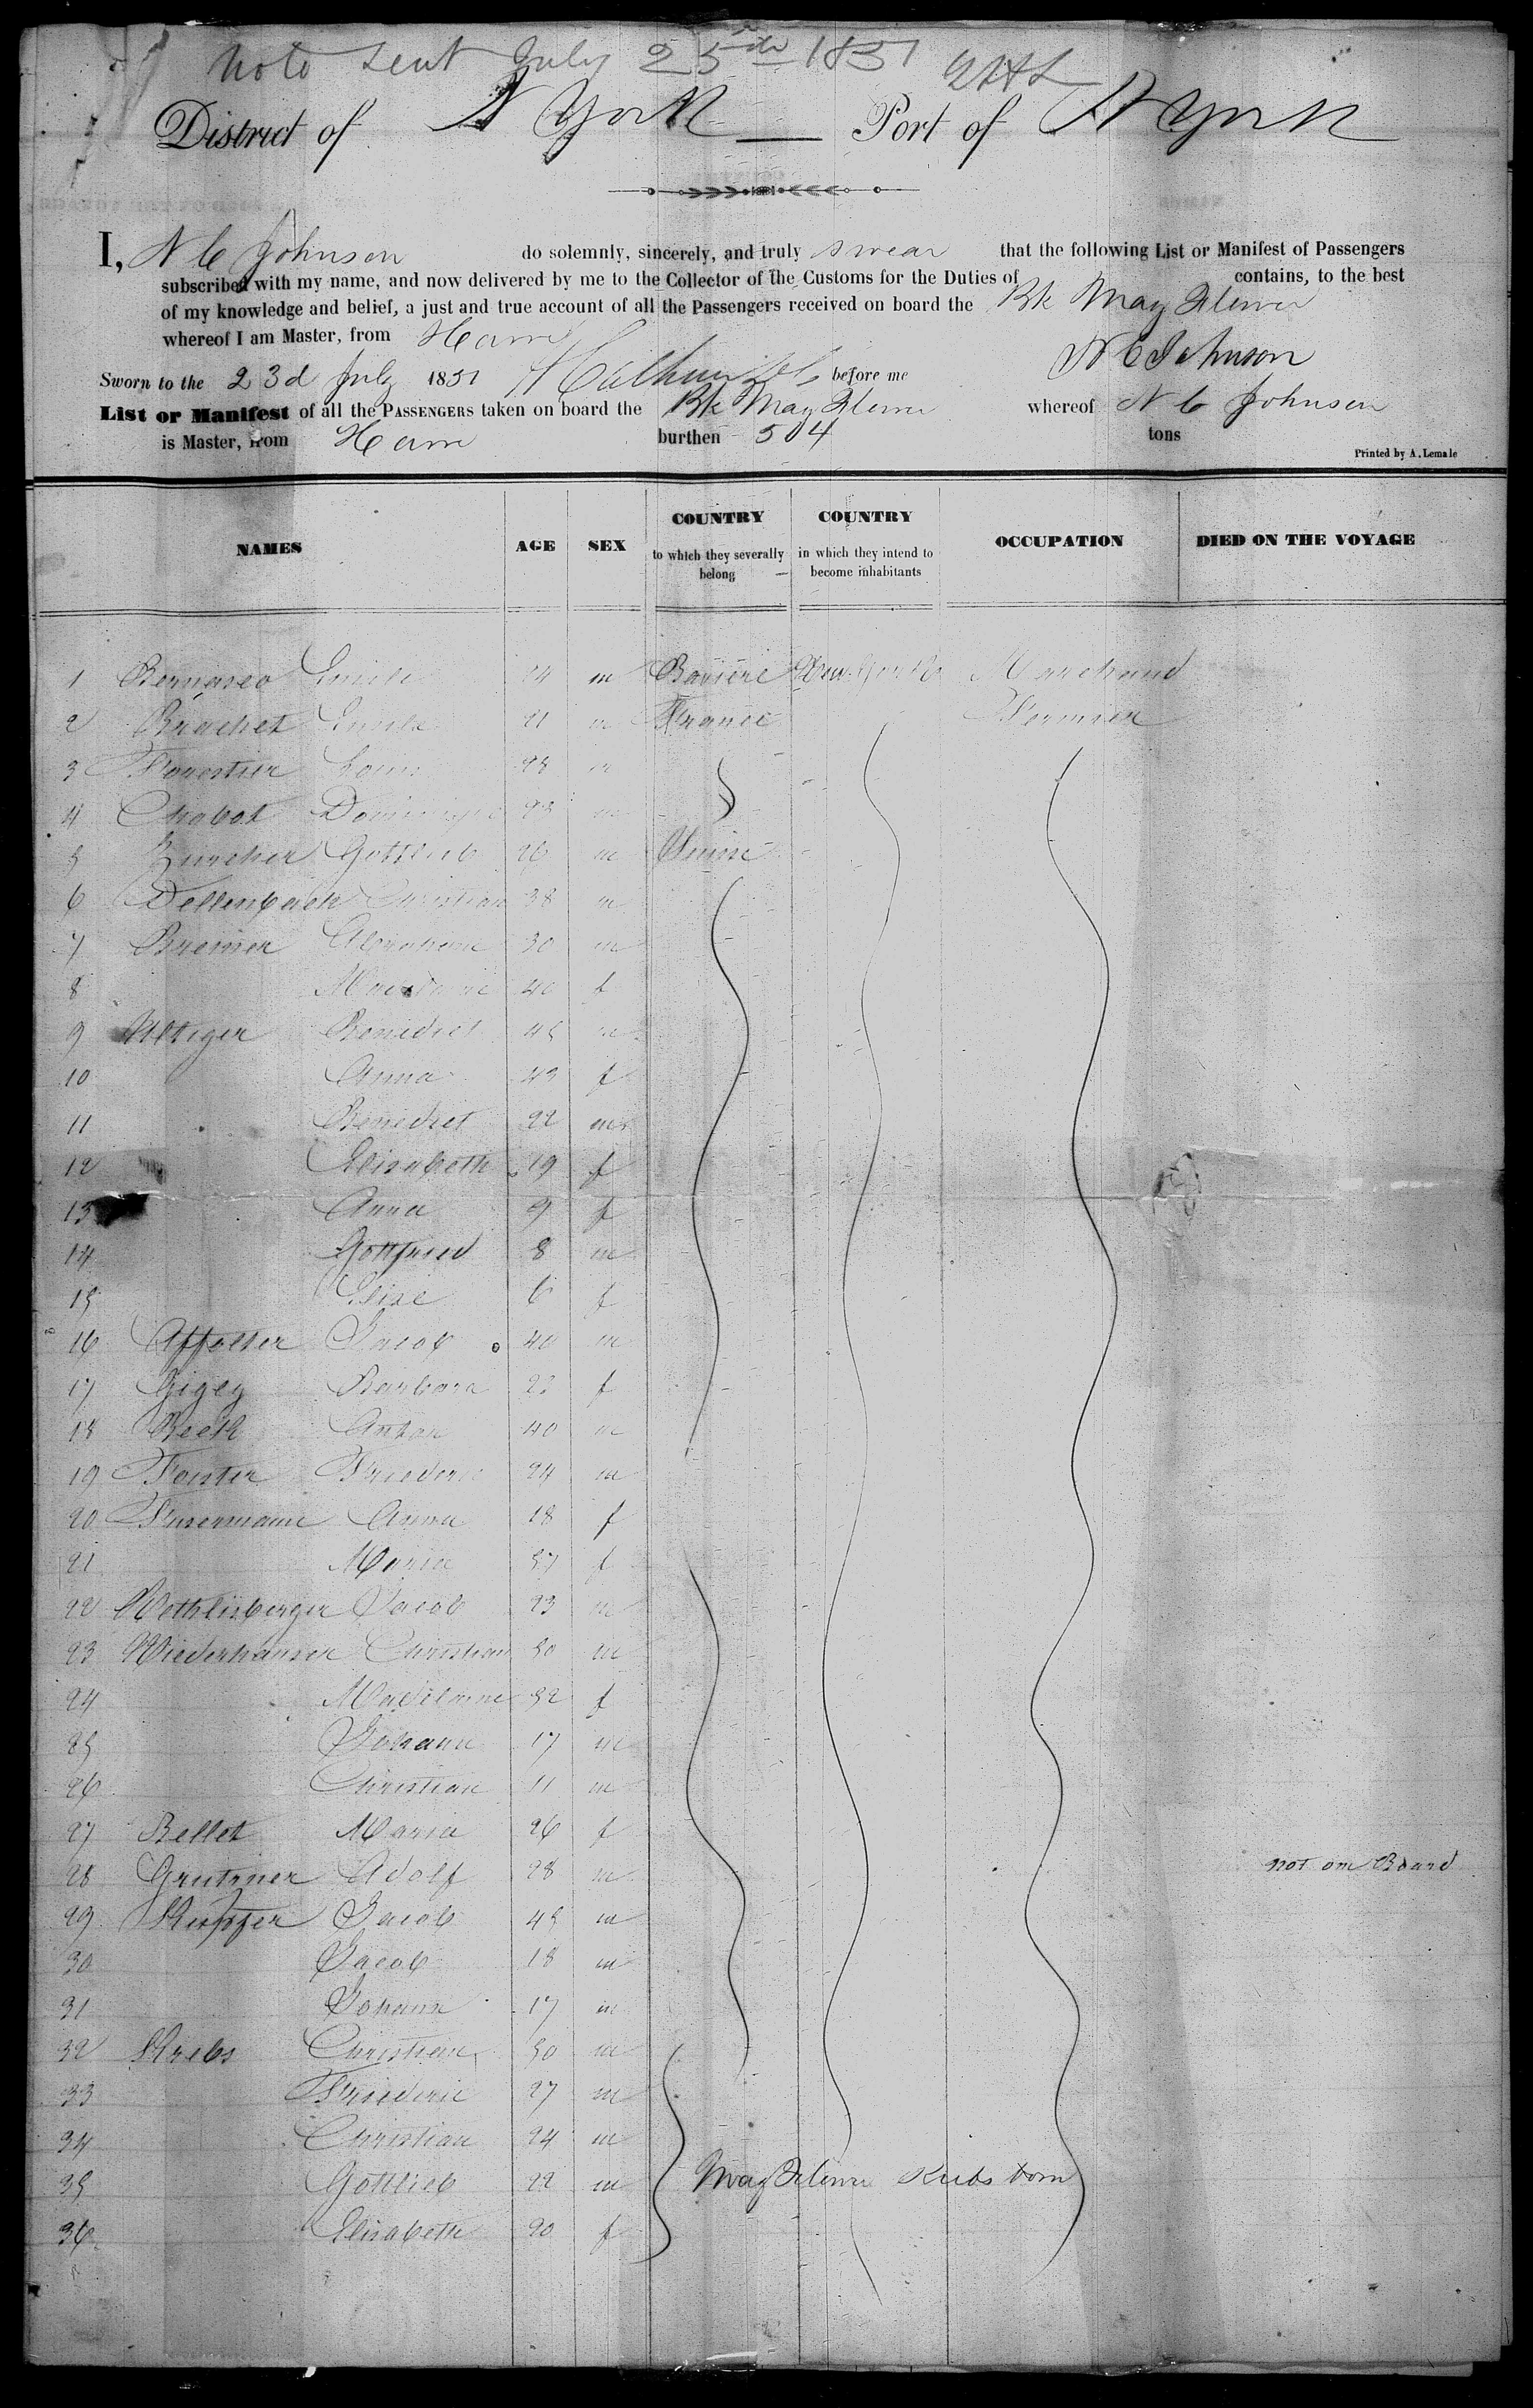 Note sent July 25th 1851
District of N York Port of N York
I, N C Johnson do solemnly, sincerely, and truly swear that the following List or Manifest of Passengers
subscribed with my name, and now delivered by me to the Collector of the Customs for the Duties of contains, to the best
of my knowledge and belief, a just and true account of all the Passengers received on board the Bk May Flower
whereof I am Master, from Havre
N C Johnson
Sworn to the 23d July 1851 before me
List or Manifest of all the PASSENGERS taken on board the Bk May Flower whereof N C Johnson
is Master, from Havre burthen 504 tons
Printed by A. Lemale
NAMES AGE SEX COUNTRY to which they severally belong COUNTRY in which they intend to become inhabitants OCCUPATION DIED ON THE VOYAGE
1 Bernasco Emile 24 m Baviere New York Marchand
2 Brachet Emile 21 m France Fermier
3 Forestier Louis 28 m
4 Chabot 23 m
5 Zurcher Gottlieb 26 m Suisse
6 Dellenbach Christian 38 m
7 Bremer Abraham 30 m
8 40 f
9 Benedict 45 m
10 Anna 43 f
11 Benedict 22 m
12 Elisabeth 19 f
13 Anna 9 f
14 Gottfried 8 m
15 Elise 6 f
16 Affolter Jacob 40 m
17 Gigey Barbara 22 f
18 Beck Anton 40 m
19 Forster Friederic 24 m
20 Anna 18 f
21 Maria 57 f
22 Rothlisberger Jacob 23 m
23 Niederhauser Christian 50 m
24 Madelaine 52 f
25 Johann 17 m
26 Christian 11 m
27 Bellet Maria 26 f
28 Grutzner Adolf 28 m not on Board
29 Kupfer Jacob 45 m
30 Jacob 18 m
31 Johann 17 m
32 Krebs Christian 50 m
33 Friederic 27 m
34 Christian 24 m
35 Gottlieb 22 m May Flower Krebs born
36 Elisabeth 20 f